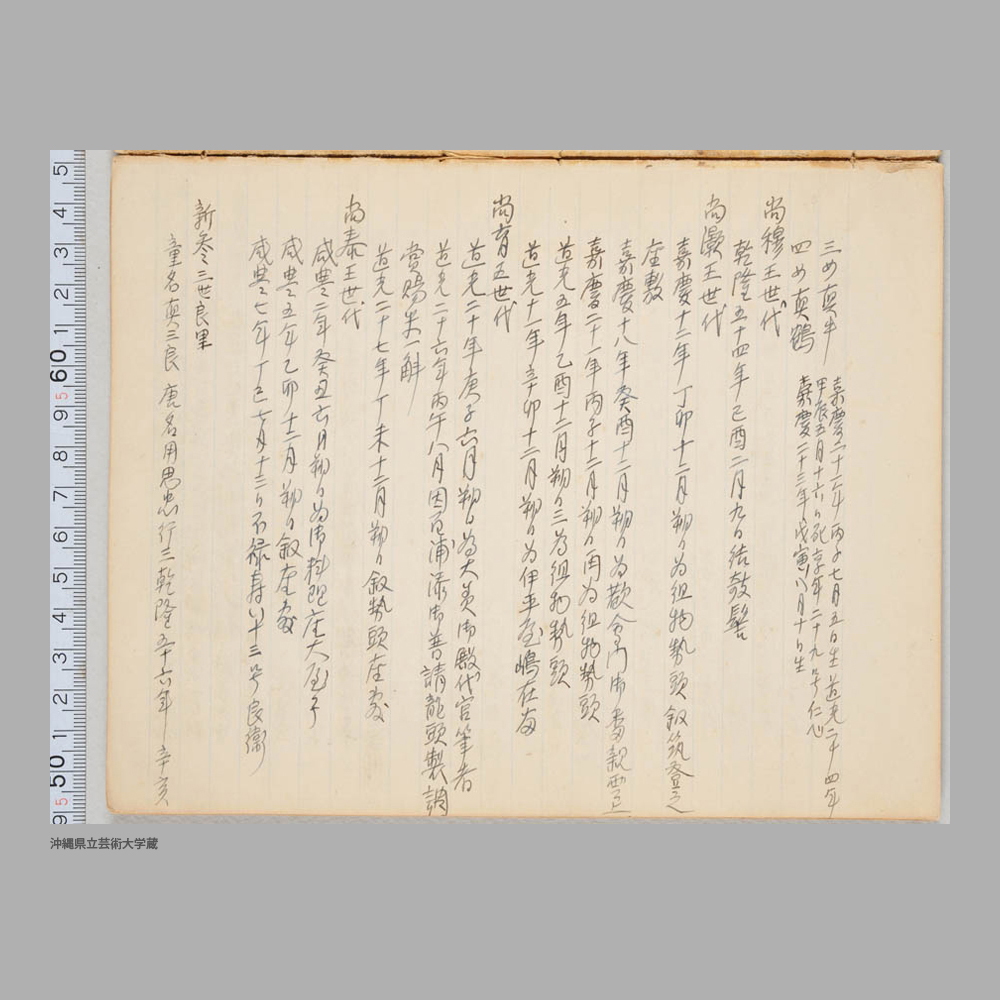 三女真牛 嘉慶二十一年丙子七月五日生 道光二十四年
甲辰五月十六日死享年二十九号仁心
四女真鶴 嘉慶二十三年戊寅八月十日生
尚穆王世代
乾隆五十四年己酉二月九日結鼓髻
尚灝王世代
嘉慶十二年丁卯十二月朔日為組物勢頭叙筑登之
座敷
嘉慶十八年癸酉十二月朔日為歓会門御番親雲上
嘉慶二十一年丙子十二月朔日再為組物勢頭
道光五年乙酉十二月朔日三為組物勢頭
道光十一年辛卯十二月朔日為伊平屋嶋在番
尚育王世代
道光二十年庚子六月朔日為大美御殿代官筆者
道光二十六年丙午八月因百浦添御普請龍頭製調
賞賜米一斛
道光二十七年丁未十二月朔日叙勢頭座敷
尚泰王世代
咸豊三年癸丑六月朔日為御料理座大屋子
咸豊五年乙卯十二月朔日叙座敷
咸豊七年丁巳七月十三日不禄寿八十三号良衛
新参三世良里
童名真三良 唐名用思忠行三乾隆五十六年辛亥
沖縄県立芸術大学蔵